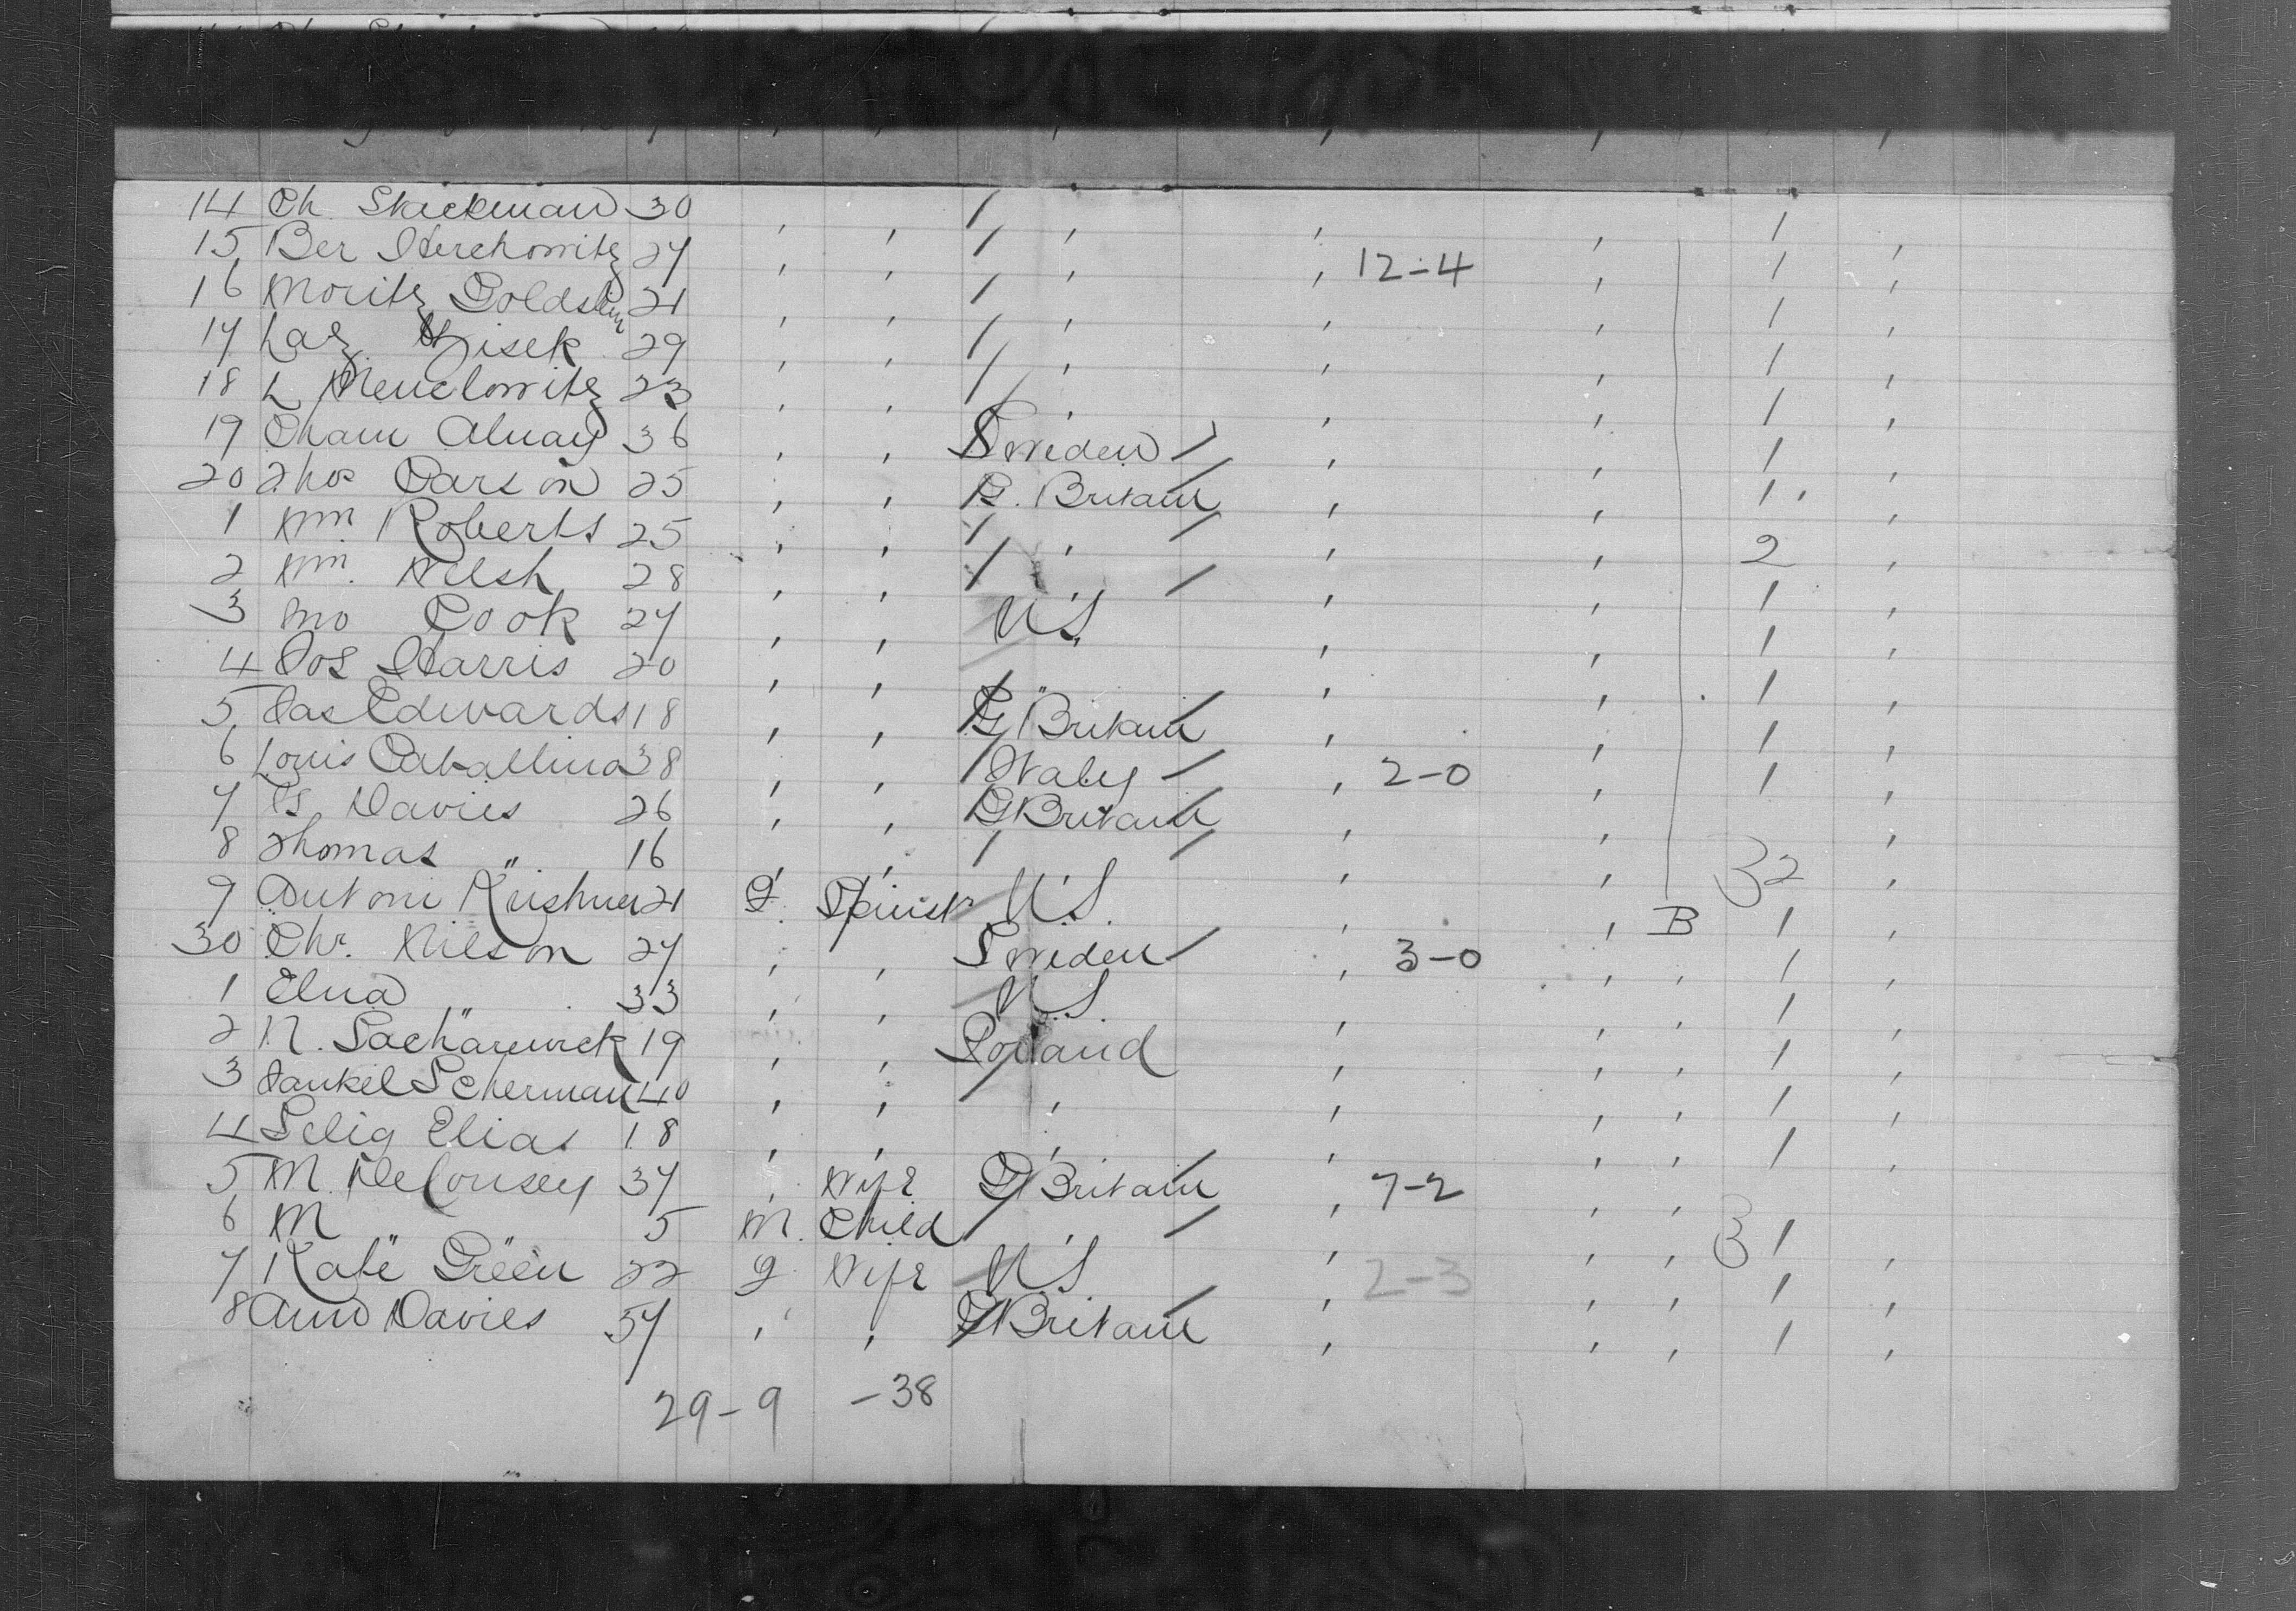 14 Ch. Skickman 30 / , 1
15 Ber Herchowitz 27 / , 12-4 1
16 Moritz Goldstein 21 / , 1
17 Laz Zisek 29 / , 1
18 L Menclowitz 23 / , 1
19 36 Sweden / 1
20 Thos Carson 25 G. Britain 1
1 Wm Roberts 25 / , 2
2 Wm. Welsh 28 / , 1
3 Cook 27 U.S. 1
4 Jos Harris 20 " 1
5 Jas Edwards 18 G Britain 1
6 Louis Caballino 38 Italy 2-0 1
7 Davies 26 G Britain
8 Thomas " 16 / 2
9 Antoni 21 F. Spinst U.S. B 1
30 Chr. Nilson 27 Sweden 3-0 1
1 Elna " 33 U.S. 1
2 N. Sacharewick 19 Poland 1
3 Jankel Scherman 40 , 1
4 Selig Elias 18 , 1
5 M. 37 , Wife G Britain 7-2
6 M " 5 M. Child , 1
7 Kate Green 22 F Wife U.S. 2-3 1
8 Ann Davies 57 , , G Britain 1
29-9 -38